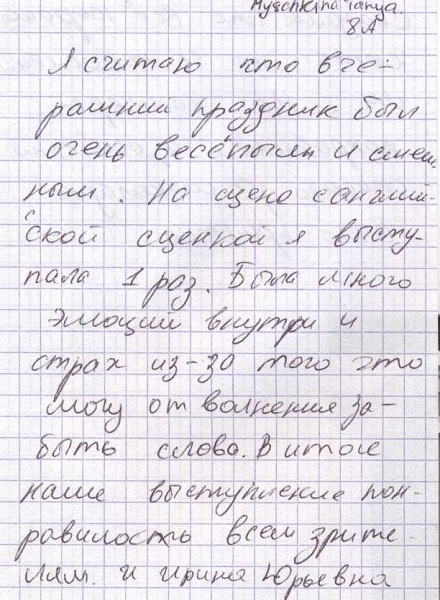 Myschkina Tanya.
8A
Я считаю что вче-
рашний праздник был
очень весёлым и смеш
ным. На сцено с англий-
ской сценкой я высту-
пала 1 раз. Была много
эмоций внутри и
страх из-за того что
могу от волнения за-
быть слова. В итоге
наше выступление пон-
равилость всем зрите-
лям. и Ирина Юрьевна